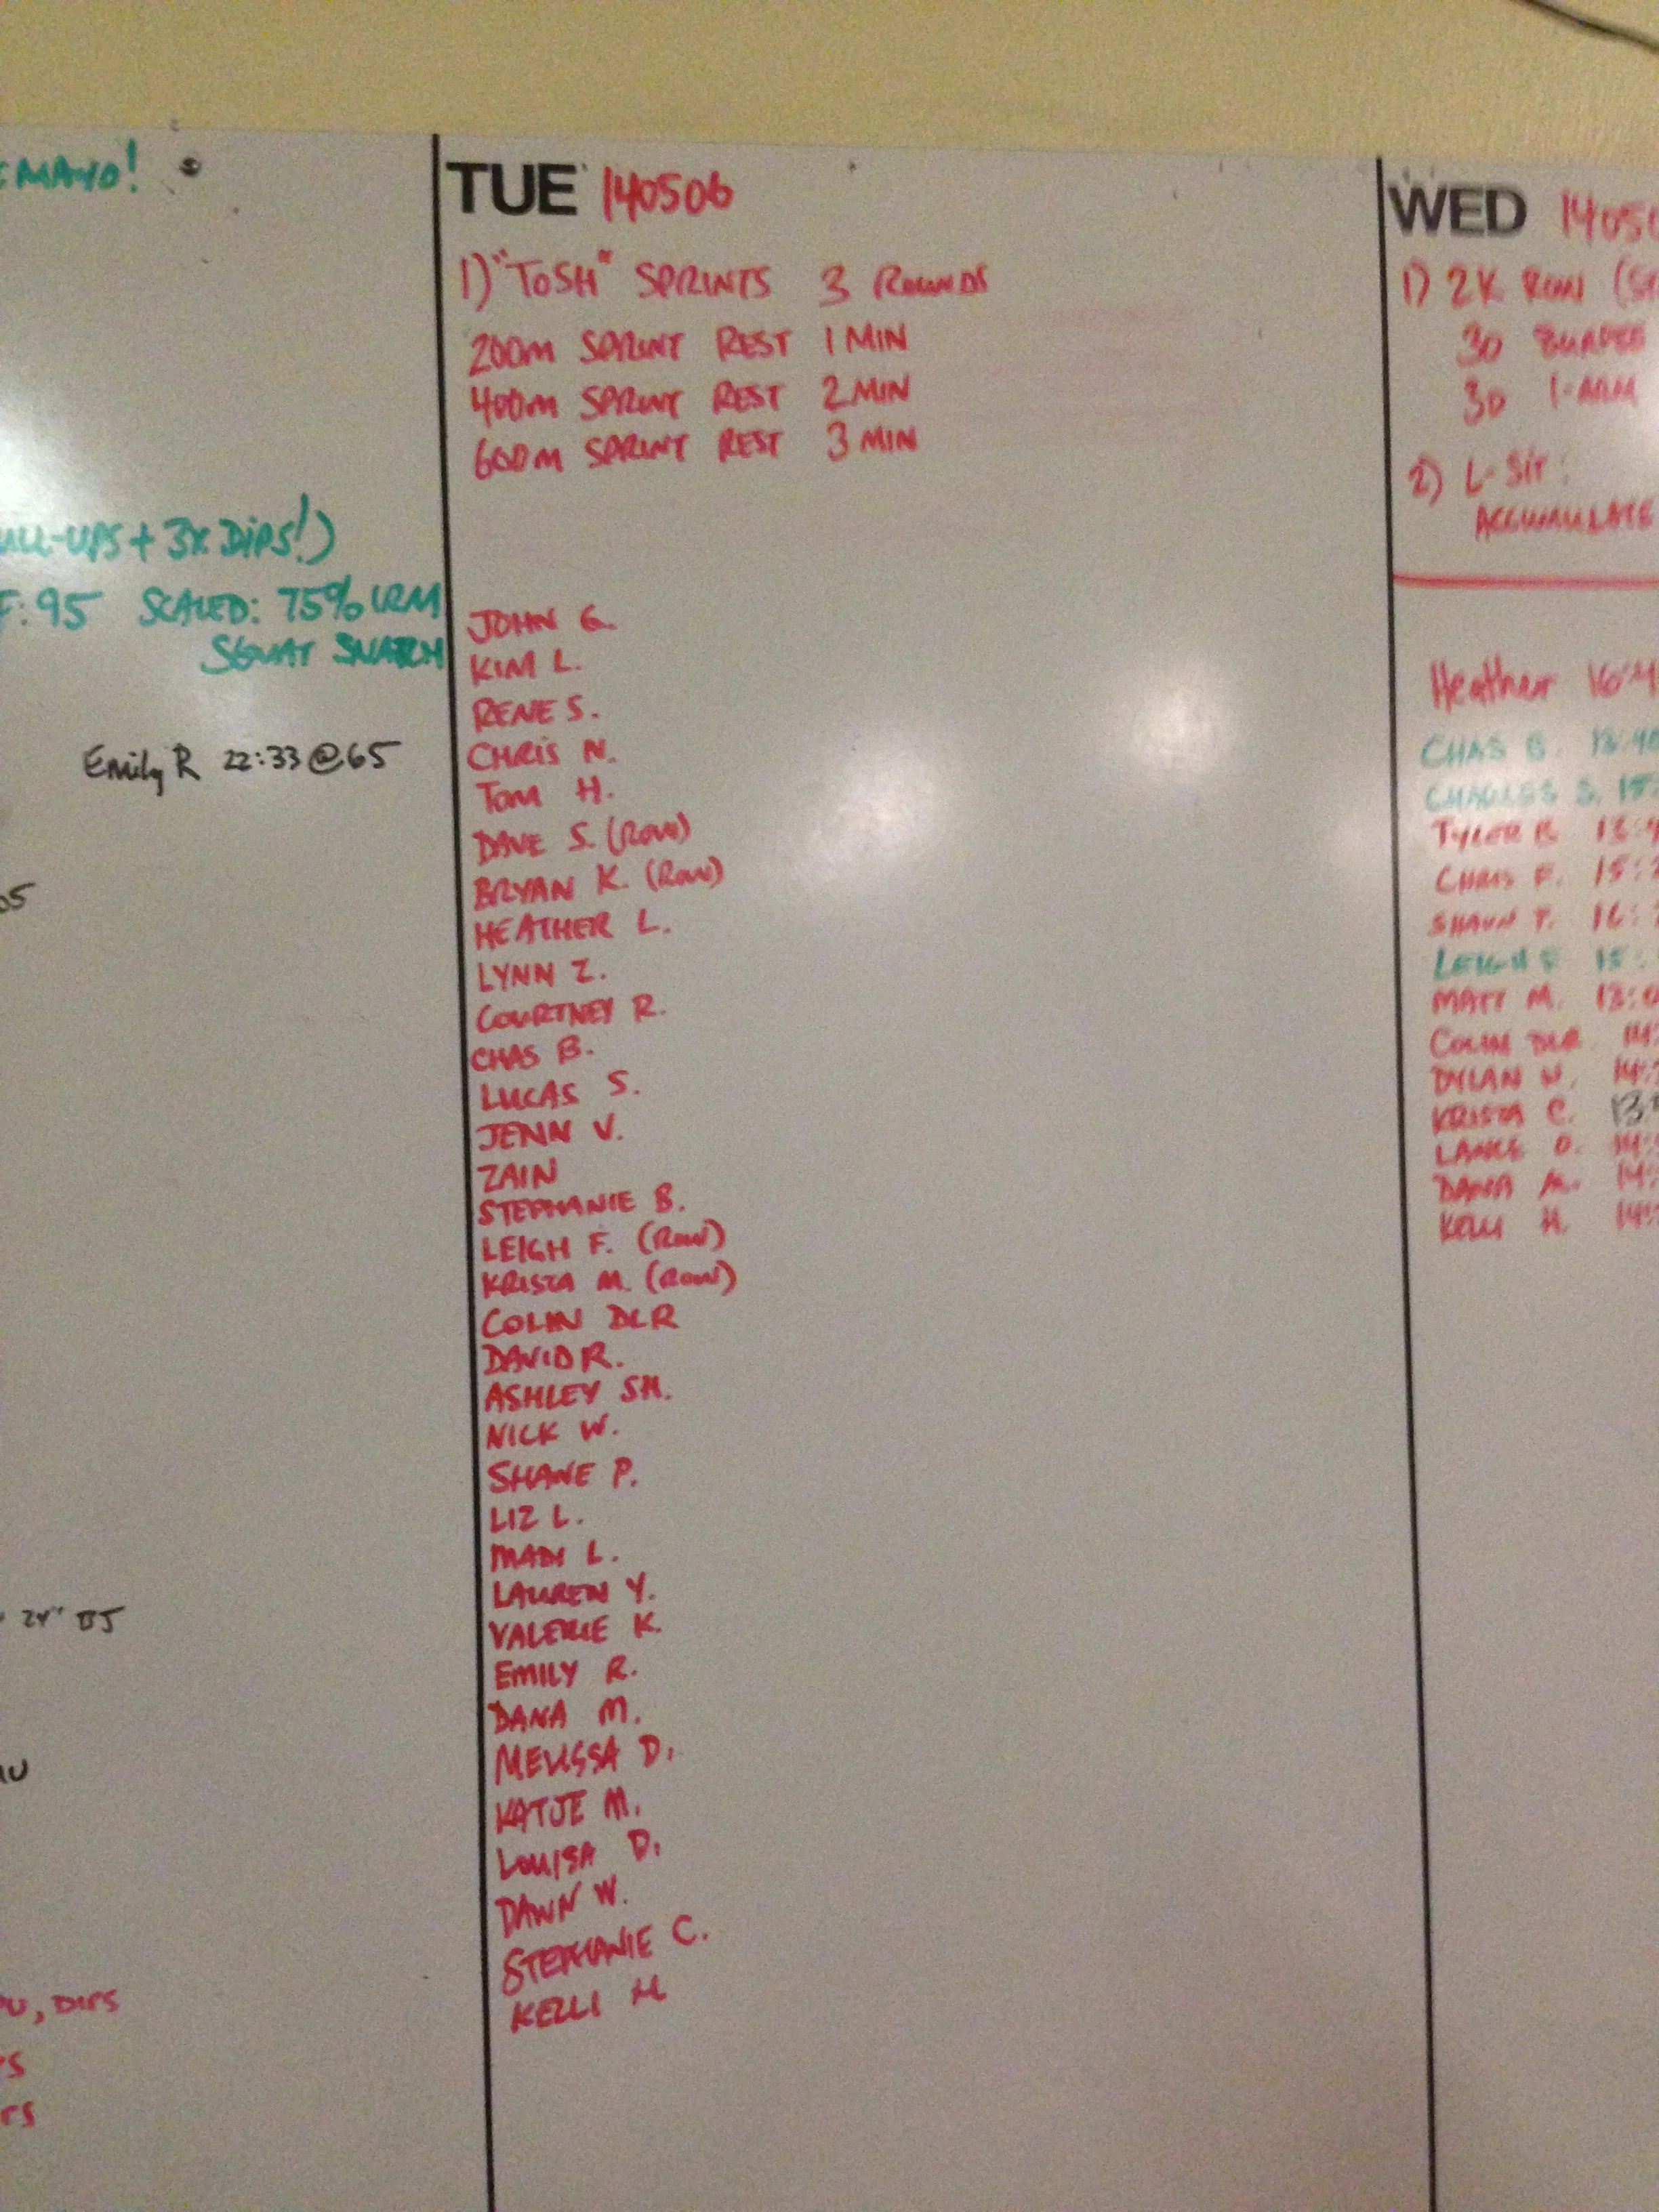 MAYO!
ULL-UPS + 3X DIPS!)
F: 95 SCALED: 75% 1RM
SQUAT SNATCH
Emily R 22:33 @65
05
24" BJ
PU, DIPS
TUE 140506
1) "TOSH" SPRINTS 3 ROUNDS
200m SPRINT REST 1 MIN
400m SPRINT REST 2 MIN
600m SPRINT REST 3 MIN
JOHN G.
KIM L.
RENE S.
CHRIS N.
TOM H.
DAVE S. (ROW)
BRYAN K. (ROW)
HEATHER L.
LYNN Z.
COURTNEY R.
CHAS B.
LUCAS S.
JENN V.
ZAIN
STEPHANIE B.
LEIGH F. (ROW)
KRISTA M. (ROW)
COLIN DLR
DAVID R.
ASHLEY SH.
NICK W.
SHANE P.
LIZ L.
MADI L.
LAUREN Y.
VALERIE K.
EMILY R.
DANA M.
MELISSA D.
KATJE M.
LOUISA D.
DAWN W.
STEPHANIE C.
KELLI H
WED 1405
1) 2K ROW
30 BURPEE
30 1-ARM
2) L-SIT:
ACCUMULATE
Heather 16:
CHAS B. 13:40
CHARLES S. 15:
TYLER B. 13:
CHRIS F. 15:
SHAUN P. 16:
LEIGH F 15:
MATT M. 13:
COLIN DLR 14:
DYLAN N. 14:
KRISTA C. 13:
LANCE O. 14:
DANA M. 14:
KELLI H. 14: